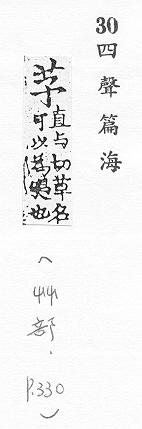 30
四聲篇海
直与切草名
可以為繩也
(艸部, P.330)